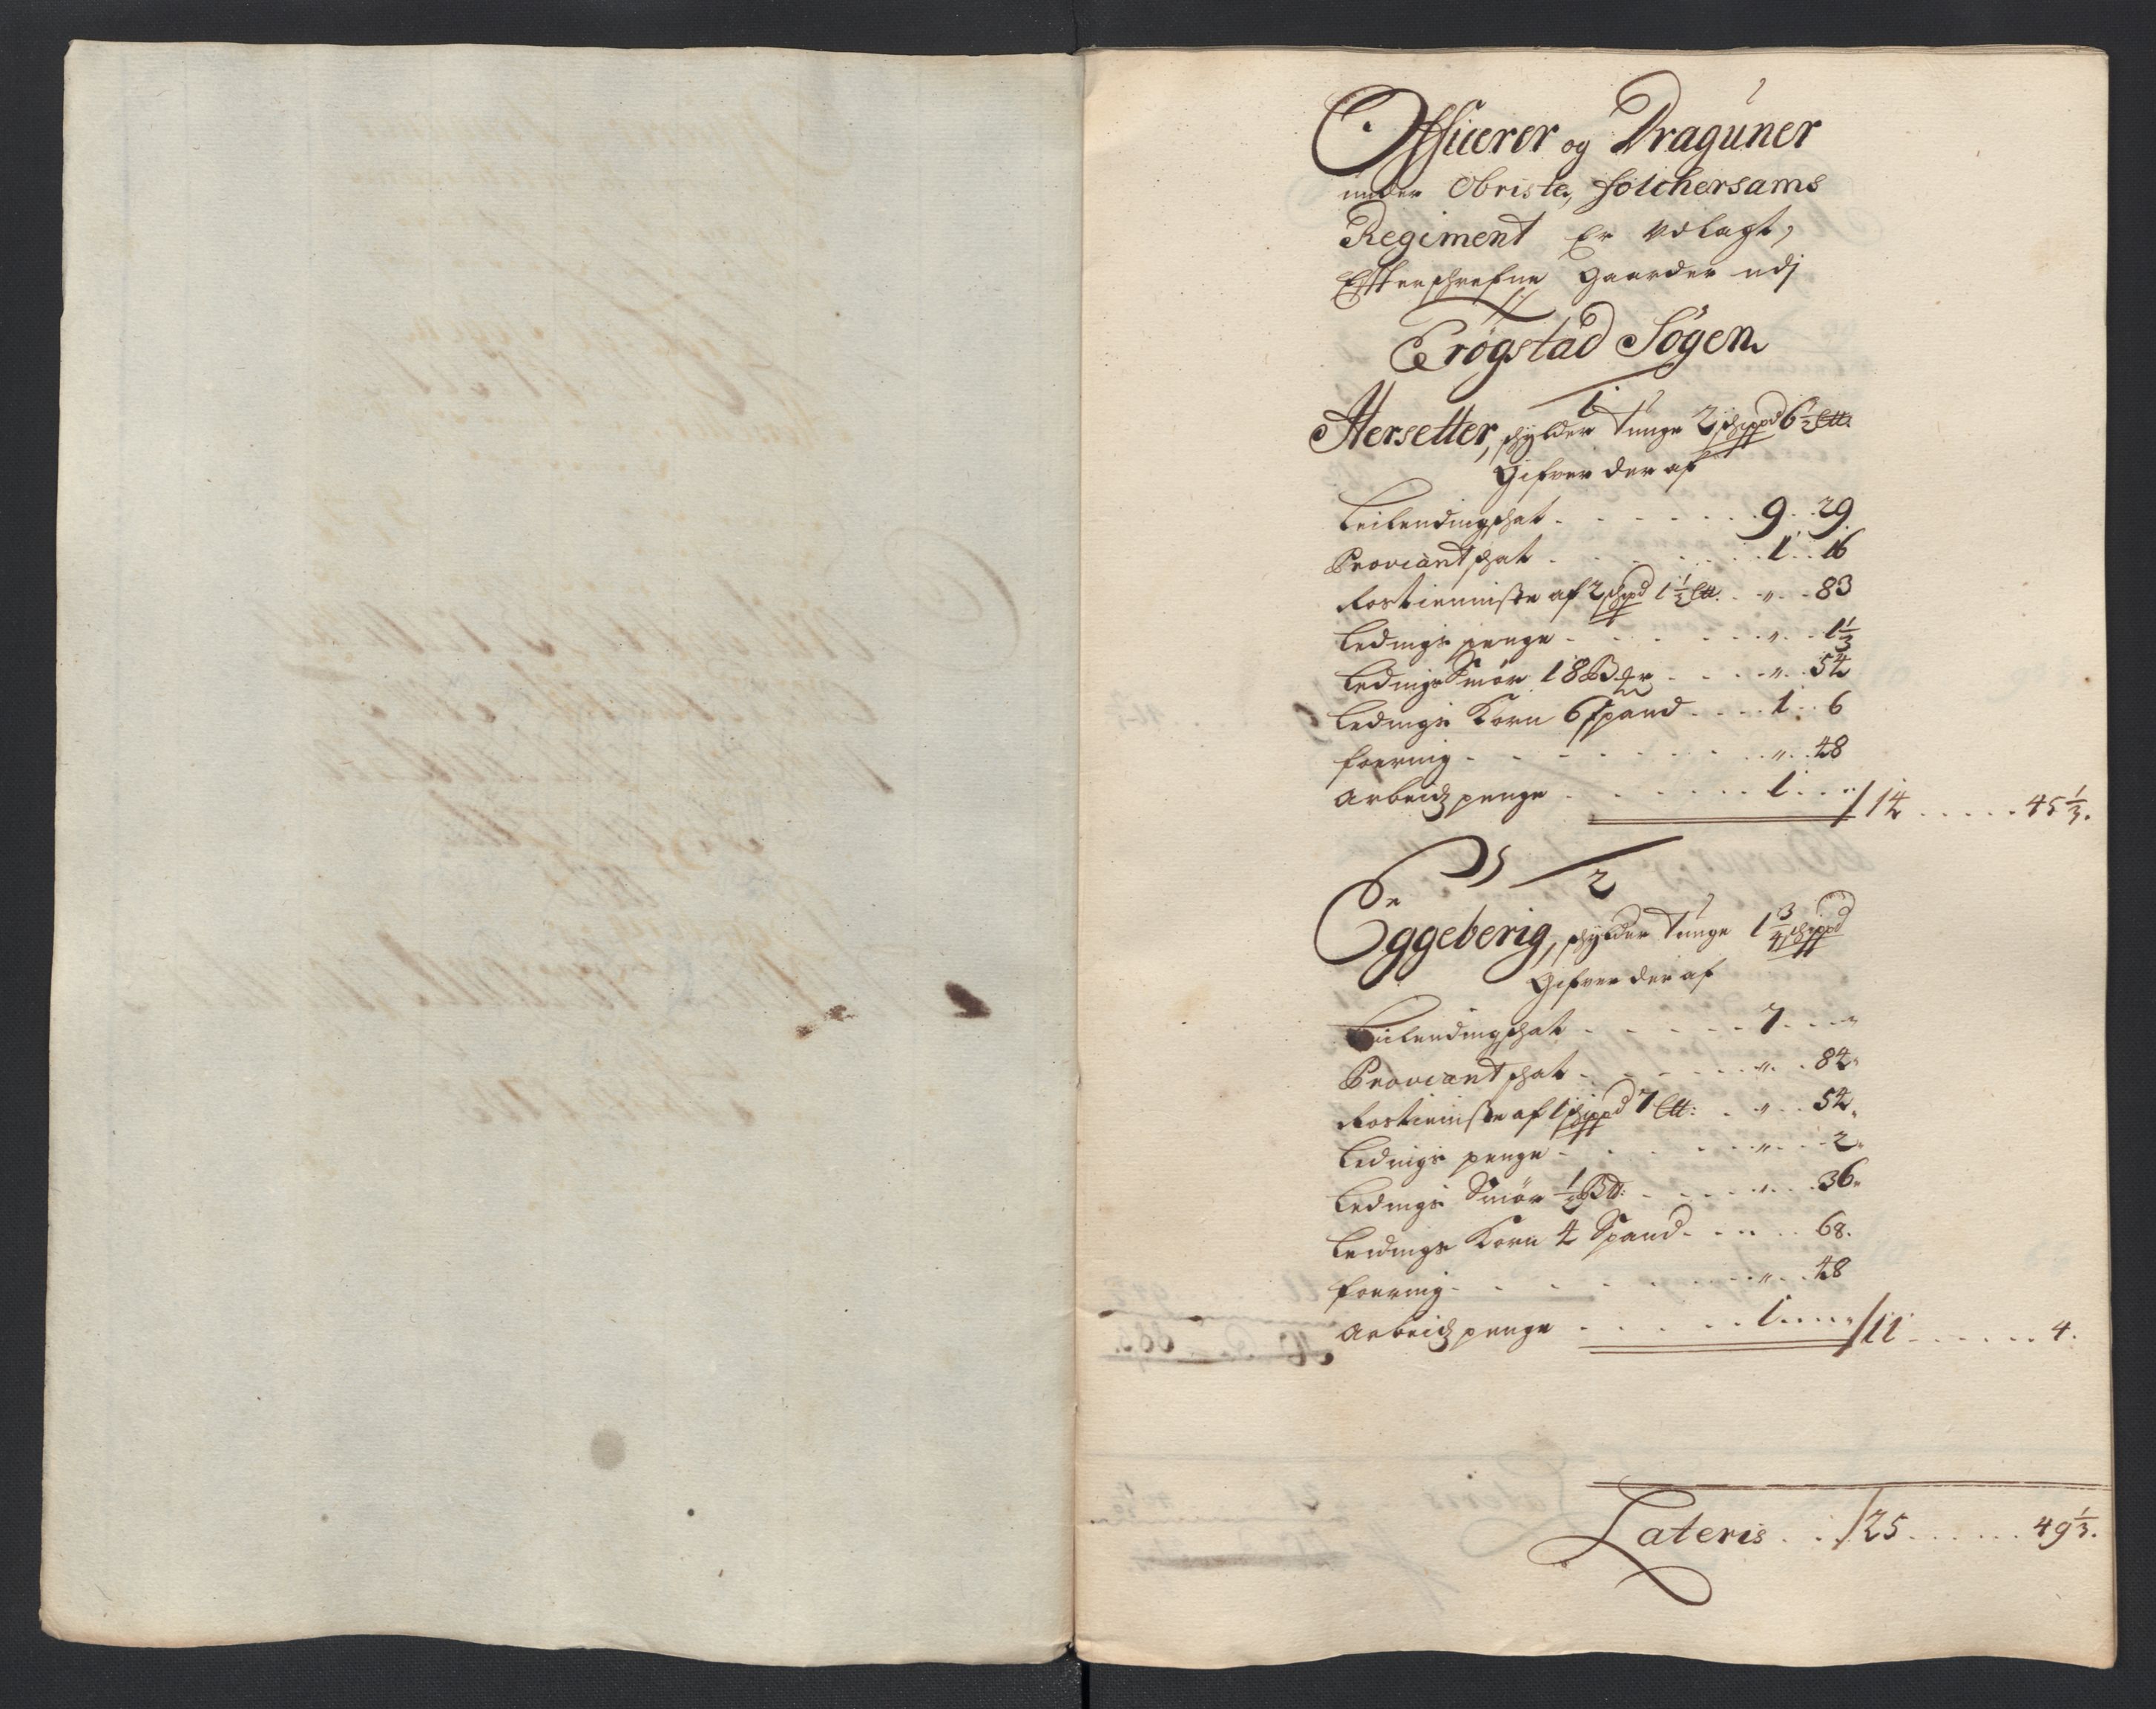 Officerer og Dragúner
under Obriste, Folchersams
Regiment Er Udlagt,
Efterschrefne Gaarder udj
Trögstad Sogen
1
Hersetter, schylder Tunge 2 schippd 6½ Ltt.
Gifver der af
Leilendingschat . . . 9 . . 29
Proviantschat . . . 1 . . 16
Rostienniste af 2 schpd 1½ Ltt. . . „ . . 83
Ledings penge . . . „ . . 1⅓
Ledings Smör 18 B. . . „ . . 54
Ledings Korn 6 Spand . . . 1 . . 6
Foering . . . „ . . 48
Arbeidzpenge . . . 1 . . „ / 14 . . . . . 45⅓.
2
Eggeberig, schylder Tunge 1¾ schippd
Gifver der af
Leilendingschat . . . 7 . . „
Proviantschat . . . „ . . 84
Rostieniste af 1 schippd 7 Ltt: . . „ . . 54
Ledings penge . . . „ . . 2
Ledings Smör ½ B . . . „ . . 36
Ledings Korn 4 Spand . . . 68.
Foering . . . „ . . 48
Arbeidzpenge . . . 1 . . „ / 11 . . . . . 4.
Lateris . . / 25 . . . . . 49⅓.